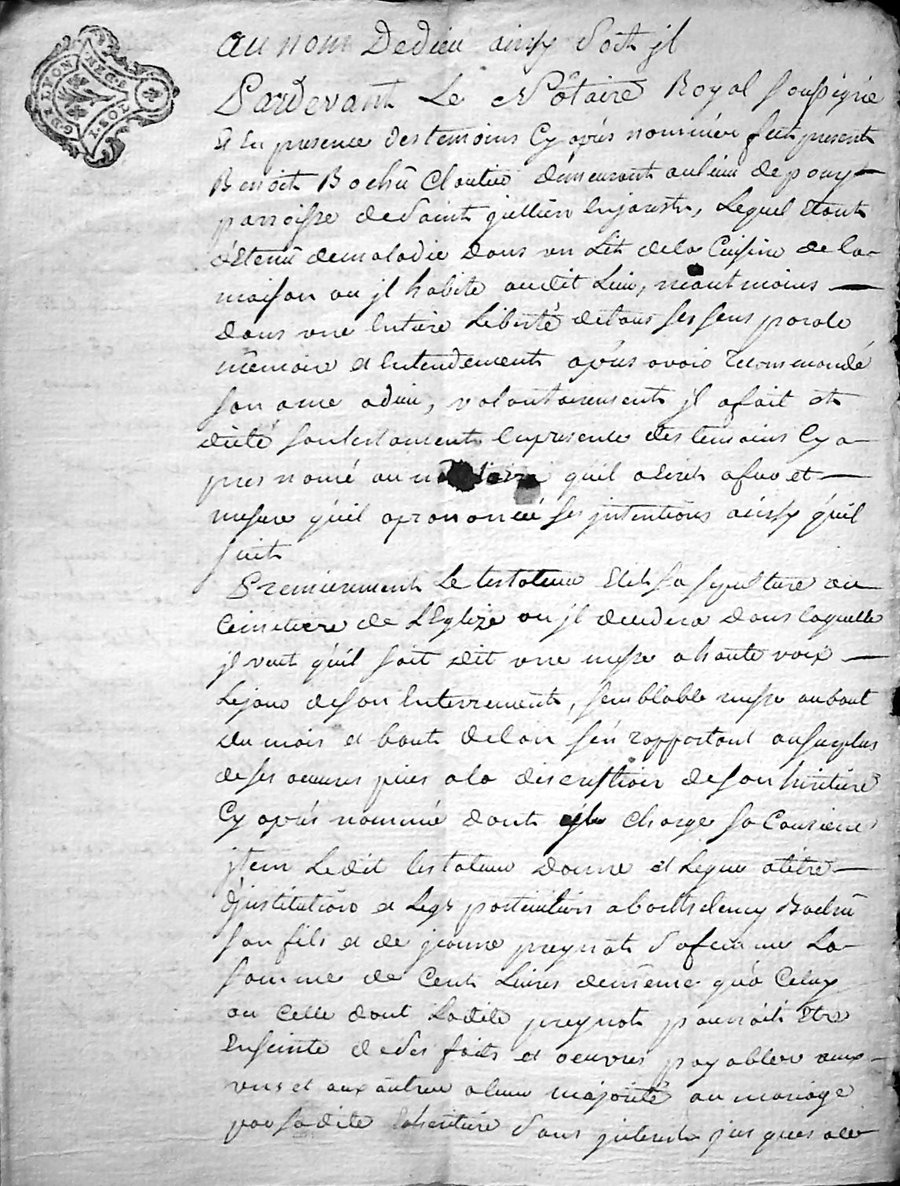 au nom De dieu ainsy soit jl
Pardevant Le Notaire Royal soussigné
& En presence des temoins Cy aprés nommées fut present
Benoit Bochu Cloutier demeurant au lieu de pouy
parroisse de Saint jullien Enjarest, Lequel Etant
détenu de maladie dans un Lit de la Cuisine de la
maison ou jl habite audit Lieu, néant moins
dans une Entiere Liberté de tous ses sens parole
mémoire et Entendement aprés avoir recommandé
son ame a dieu, volontairement jl a fait et
dicté son testament En presence des temoins Cy a
pres nomé au notaire quil a Ecrit a fur et
mesure qu'il a prononcé ses jntentions ainsy qu'il
suit
Premierement Le testateur Elit sa sepulture au
Cimetiere de L'Eglize ou jl decedera dans laquelle
jl veut qu'il soit dit une messe a haute voix
Le jour de son Enterrement, semblable messe au bout
du mois et bout de l'an s'en rapportant au surplus
de ses oeuvres pies a la discrettion de son heritiere
Cy aprés nommée dont jl charge sa Consience
jtem Ledit testateur donne et Legue a titre
d'jnstitution et Legs particulier a barthelemy Bochu
son fils et de jeanne preynat sa femme La
somme de Cent Livres de méme qu'a Celuy
ou Celle dont Ladite preynat pourroit Etre
Enceinte de ses faits et oeuvres payables aux
uns et aux autres a leur majorité ou mariage
par sadite heritiere sans jnterest jusques alor